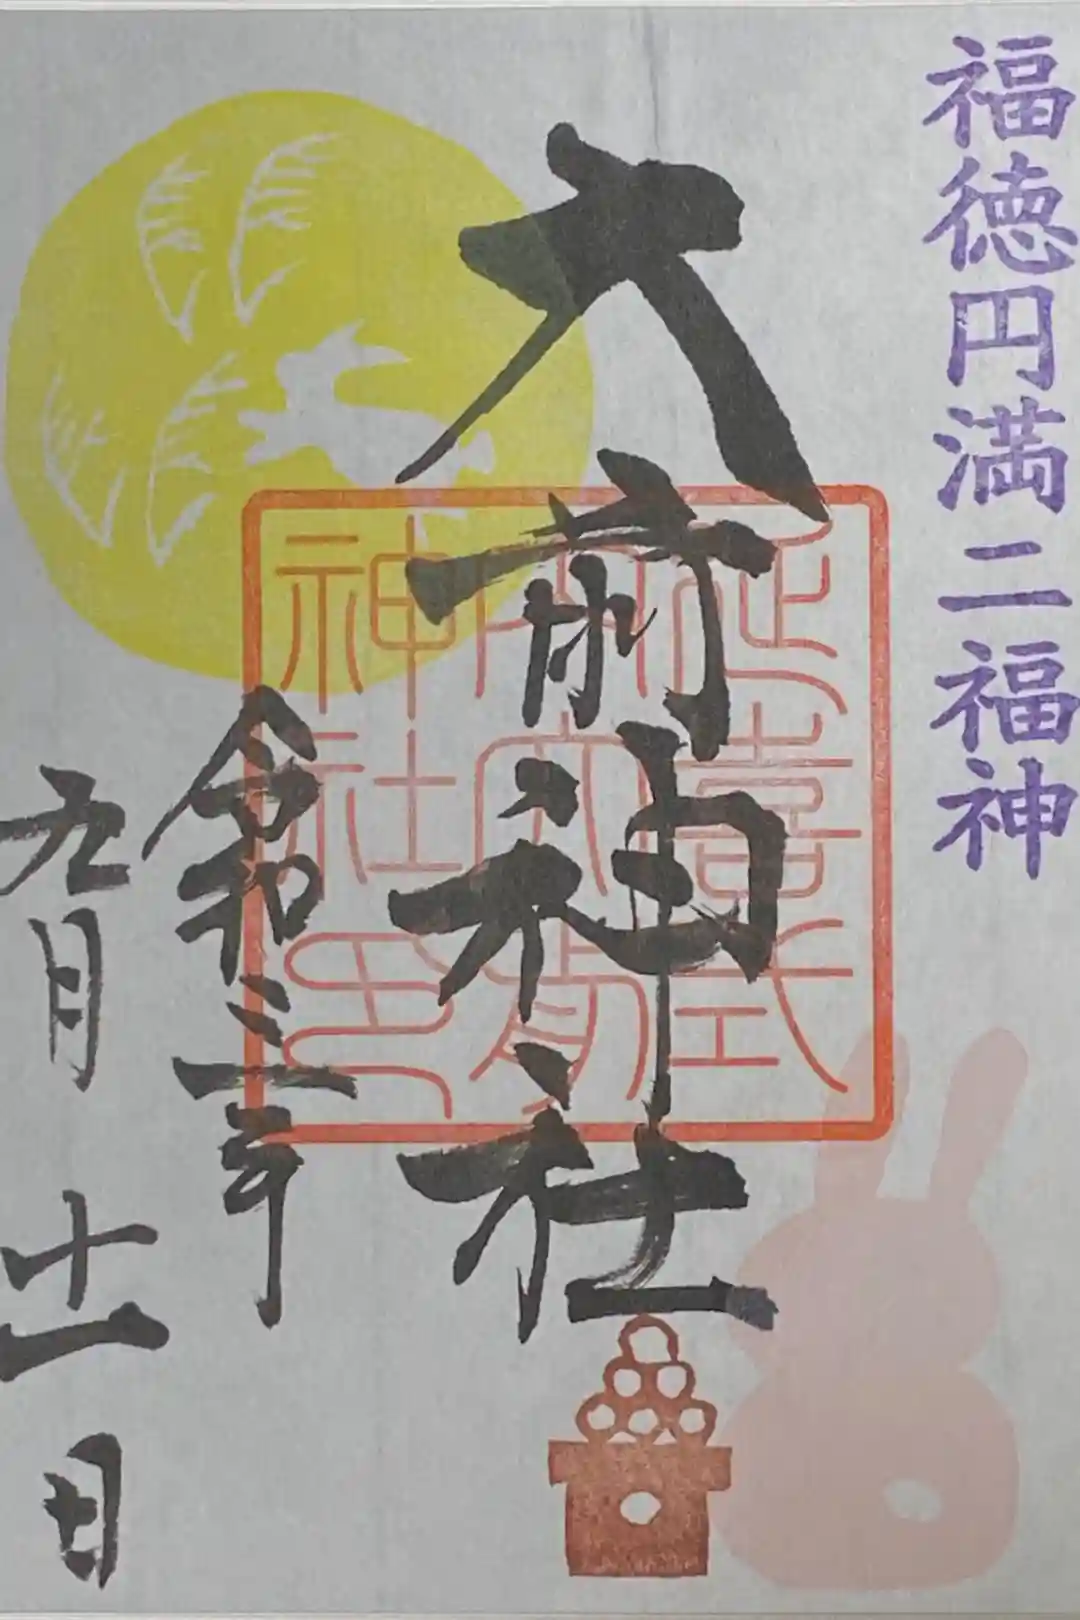 福徳円満二福神
大前神社
延喜式
内大前
神社印
令和三年
九月十一日